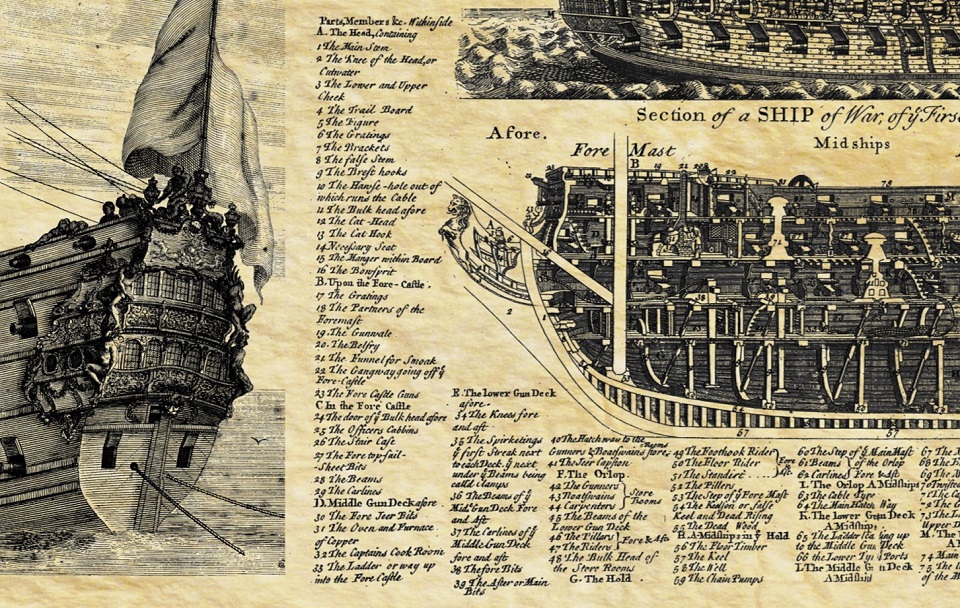 Parts, Members &c. Withinside
A. The Head, Containing
1 The Main Stem
2 The Knee of the Head, or
Cutwater
3 The Lower and Upper
Cheek
4 The Trail Board
5 The Figure
6 The Gratings
7 The Brackets
8 The false Stem
9 The Brest hooks
10 The Hawse-hole out of
which runs the Cable
11 The Bulk head afore
12 The Cat-Head
13 The Cat Hook
14 Necessary Seat
15 The Manger within Board
16 The Bowsprit
B. Upon the Fore-Castle.
17 The Gratings
18 The Partners of the
Foremast
19 The Gunwale
20 The Belfry
21 The Funnel for Smoak
22 The Gangway going off yͤ
Fore-Castle
23 The Fore Castle Guns
C In the Fore Castle
24 The door of yͤ Bulk head afore
25 The Officers Cabbins
26 The Stair Case
27 The Fore top-sail-
Sheet Bits
28 The Beams
29 The Carlines
D. Middle Gun Deck afore.
30 The Fore Jeer Bits
31 The Oven and Furnace
of Copper
32 The Captains Cook Room
33 The Ladder or way up
into the Fore Castle
E. The lower Gun Deck
afore.
34 The Knees fore
and aft
35 The Spirketings
yͤ first Streak next
to each Deck yͤ next
under yͤ Beams being
calld clamps
36 The Beams of yͤ
Midͤ Gun Deck Fore
and Aft
37 The Carlines of yͤ
Middle Gun Deck
fore and aft
38 The fore Bits
39 The After or Main
Bits
40 The Hatch way to the
Gunners & Boatswains Store Rooms
41 The Jeer Capston
F. The Orlop.
42 The Gunners
43 Boatswains
44 Carpenters
Store
Rooms
45 The Beams of the
Lower Gun Deck
46 The Pillars
47 The Riders
Fore & Aft
48 The Bulk Head of
the Store Rooms
G. The Hold.
49 The Foothook Rider
50 The Floor Rider
Fore
Aft.
51 The Standerd
52 The Pillers
53 The Step of yͤ Fore Mast
54 The Keelson or false
Keel and Dead Rising
55 The Dead Wood
H. A Midships in yͤ Hold
56 The Floor Timber
57 The Keel
58 The Well
59 The Chain Pumps
60 The Step of yͤ Main Mast
61 Beams
62 Carlines
of the Orlop
Fore & Aft
I. The Orlop A Midships
63 The Cable Tyre
64 The Main Hatch Way
K. The lower Gun Deck
A Midships.
65 The Ladder leading up
to the Middle Gun Deck
66 the Lower Tyre Ports
L. The Middle Gun Deck
A Midships
74 Main
Section of a SHIP of War, of yͤ First
Afore.
Midships
Fore Mast
B
2
57
57